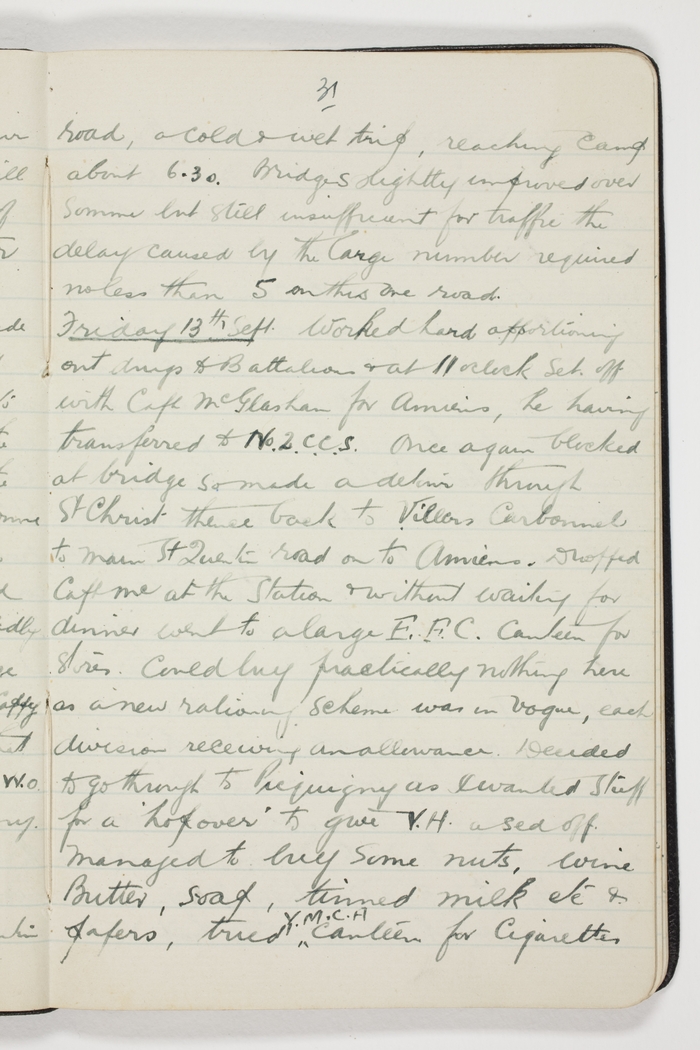 31
road, a cold & wet trip, reaching camp
about 6.30. Bridges slightly improved over
Somme but still insufficient for traffic the
delay caused by the large number required
no less than 5 on this one road.
Friday 13th Sept. Worked hard apportioning
out drugs to Battalions & at 11 oclock Set off
with Capt McGlashan for Amiens, he having
transferred to No. 2 C.C.S. Once again blocked
at bridge so made a detour through
St Christ thence back to Villers Carbonnel
to main St Quentin road on to Amiens. Dropped
Capt Mc at the Station & without waiting for
dinner went to a large E.F.C. Canteen for
Stores. Could buy practically nothing here
as a new rationing scheme was in vogue, each
division receiving an allowance. Decided
to go through to Picquigny as I wanted Stuff
for a 'hop over' to give V.H. a
Managed to buy Some nuts, wine
Butter, soap, tinned milk etc &
papers, tried Y.M.C.A Canteen for Cigarettes